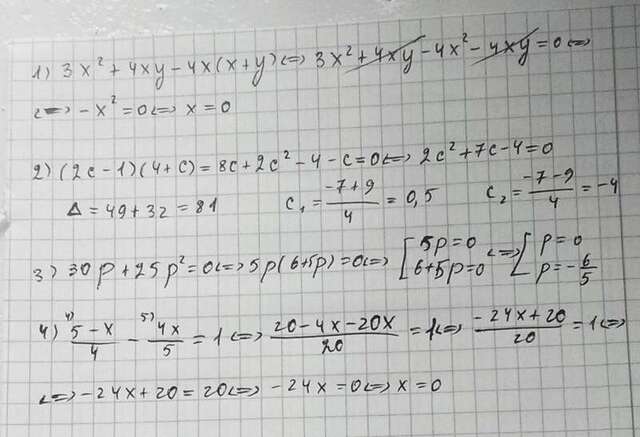 1) 3x² + 4xy - 4x(x+y) <=> 3x² + 4xy - 4x² - 4xy = 0 <=>
<=> -x² = 0 <=> x = 0
2) (2c-1)(4+c) = 8c + 2c² - 4 - c = 0 <=> 2c² + 7c - 4 = 0
Δ = 49 + 32 = 81 c₁ = (-7+9)/4 = 0,5 c₂ = (-7-9)/4 = -4
3) 30p + 25p² = 0 <=> 5p(6+5p) = 0 <=> [5p = 0; 6+5p = 0 <=> [p = 0; p = -6/5
4) ⁴⁾(5-x)/4 - ⁵⁾4x/5 = 1 <=> (20-4x-20x)/20 = 1 <=> (-24x+20)/20 = 1 <=>
<=> -24x + 20 = 20 <=> -24x = 0 <=> x = 0